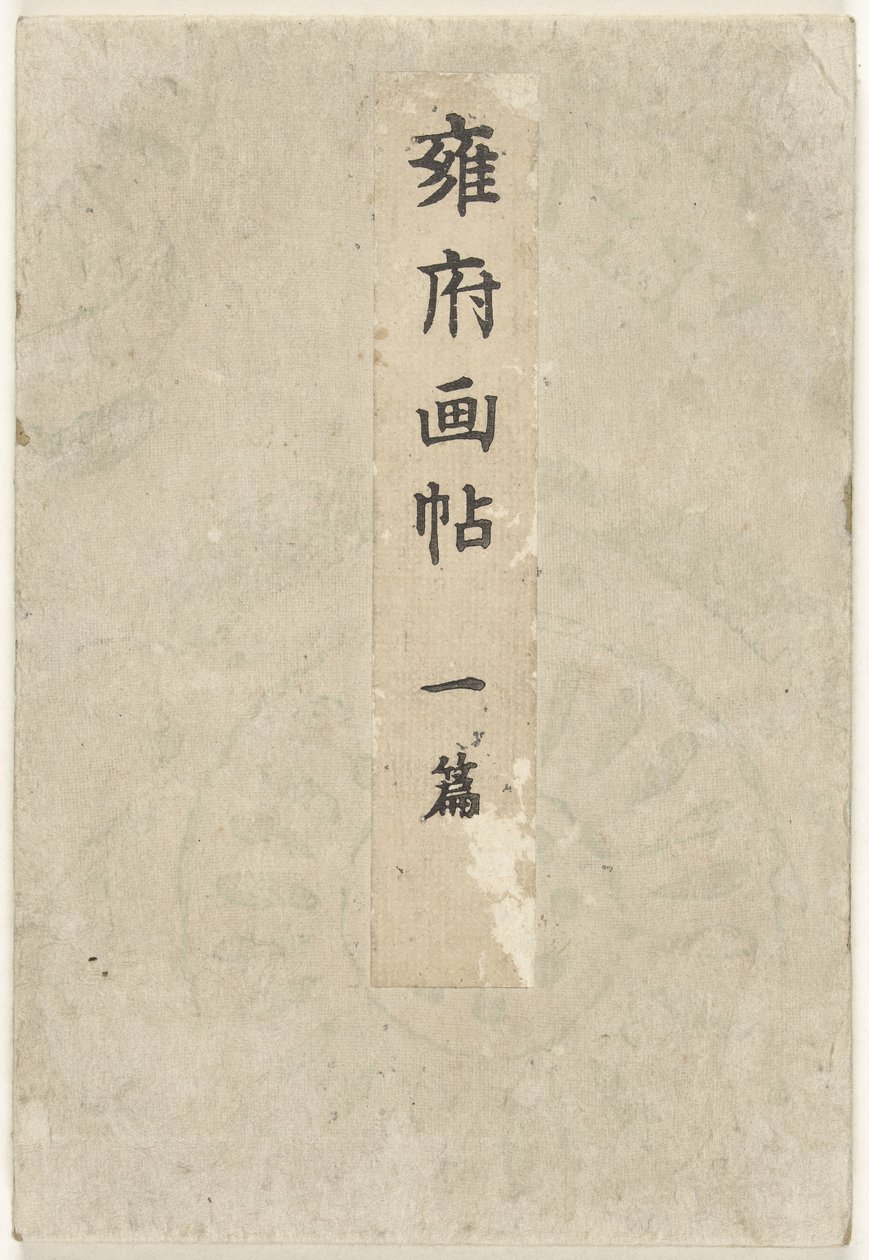 雍府画帖 一篇